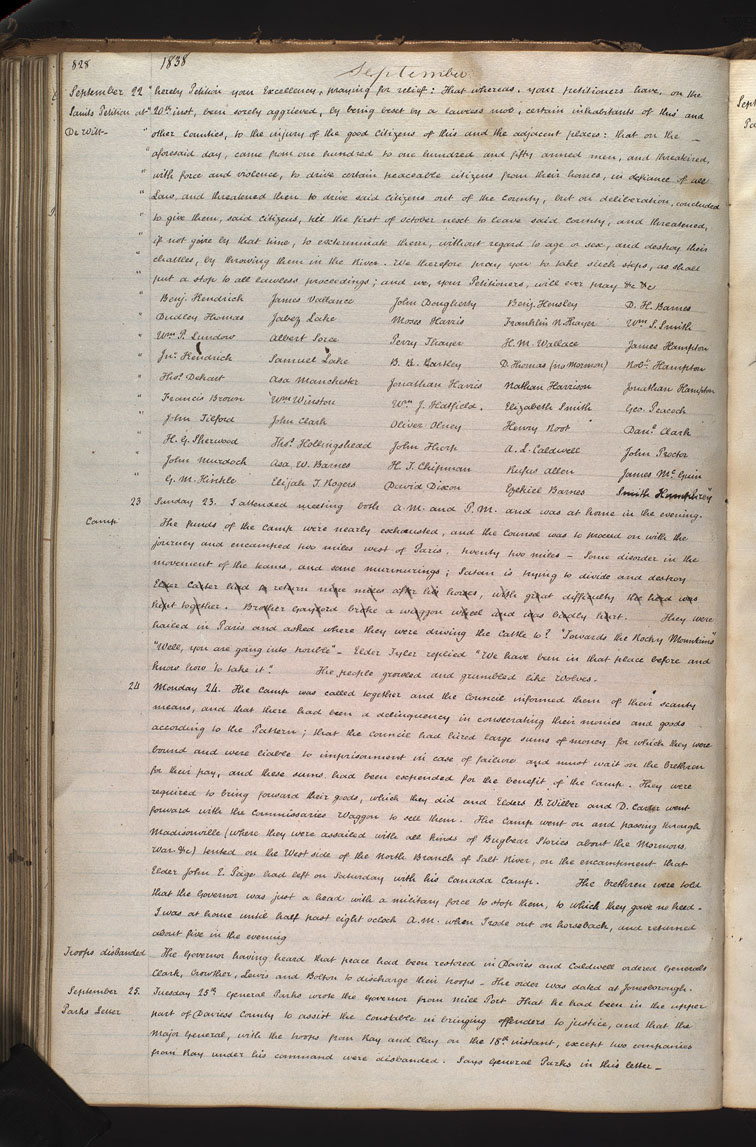 828 1838
September
September 22 " hereby Petition your Excellency, praying for relief: That whereas, your petitioners have, on the
Saints Petition at " 20th inst, been sorely aggrieved, by being beset by a lawless mob, certain inhabitants of this and
De Witt- " other Counties, to the injury of the good citizens of this and the adjacent places: that on the —
" aforesaid day, came from one hundred to one hundred and fifty armed men, and threatened,
" with force and violence, to drive certain peaceable citizens from their homes, in defiance of all
" Law, and threatened then to drive said citizens out of the County, but on deliberation, concluded
" to give them, said citizens, till the first of october next to leave said County, and threatened,
" if not gone by that time, to exterminate them, without regard to age or sex, and destroy their
" chattles, by throwing them in the River. We therefore pray you to take such steps, as shall
" put a stop to all lawless proceedings; and we, your Petitioners, will ever pray &c &c
" Benj. Kendrich James Vallance John Dougherty Benj. Hensley D. H. Barnes
" Dudley Thomas Jabez Lake Moses Harris Franklin N Thayer Wm S. Smith
" Wm P. Lundow Albert Sorce Perry Thayer H. M. Wallace James Hampton
" Jno. Kendrich Samuel Lake B. B. Bartley D. Thomas (no Mormon) Robt. Hampton
" Thos. Dehart Asa Manchester Jonathan Harris Nathan Harrison Jonathan Hampton
" Francis Brown Wm Winston Wm J. Hatfield. Elizabeth Smith Geo. Peacock
" John Tilford John Clark Oliver Olney Henry Root Danl. Clark
" H. G. Sherwood Thos. Hollingshead John Thorp A. L. Caldwell John Proctor
" " John Murdock Asa. W. Barnes H. T. Chipman Rufus Allen James McGuin
" G. M. Hinkle Elijah T. Rogers David Dixon Ezekiel Barnes Smith Humphrey
23 Sunday 23. I attended meeting both A.M. and P.M. and was at home in the evening.
Camp The funds of the camp were nearly exhausted, and the Counsel was to proceed on with the
journey and encamped two miles west of Paris. twenty two miles — Some disorder in the
movement of the teams, and some murmurings; Satan is trying to divide and destroy
Elder Carter had to return nine miles after his horses, with great difficulty the herd was
kept together. Brother Gaylord broke a waggon wheel and was badly hurt. They were
hailed in Paris and asked where they were driving the cattle to? "Towards the Rocky Mountains"
"Well, you are going into trouble" - Elder Tyler replied "We have been in that place before and
know how to take it". The people growled and grumbled like Wolves.
24 Monday 24. The Camp was called together and the Council informed them of their scanty
means, and that there had been a delinquency in consecrating their monies and goods
according to the Pattern; that the council had hired large sums of money for which they were
bound and were liable to imprisonment in case of failure and must wait on the brethren
for their pay, and these sums had been expended for the benefit of the camp. They were
required to bring forward their goods, which they did and Elders B. Wilber and D. Carter went
forward with the Commissaries Waggon to sell them. The Camp went on and passing through
Madisonville (where they were assailed with all kinds of Bugbear Stories about the Mormons
War &c) tented on the West side of the North Branch of Salt River, on the encampment that
Elder John E. Page had left on Saturday with his Canada Camp. The brethren were told
that the Governor was just a head with a military force to stop them, to which they gave no heed.
I was at home until half past eight oclock A.M. when I rode out on horseback, and returned
about five in the evening
Troops disbanded The Governor having heard that peace had been restored in Davies and Caldwell ordered Generals
Clark, Crowther, Lewis and Bolton to discharge their troops - The order was dated at Jonesborough.
September 25. Tuesday 25th General Parks wrote the Governor from Mill Port That he had been in the upper
Parks Letter part of Daviess County to assist the Constable in bringing offenders to justice, and that the
Major General, with the troops from Ray and Clay on the 18th instant, except two companies
from Ray under his command were disbanded. Says General Parks in this letter —